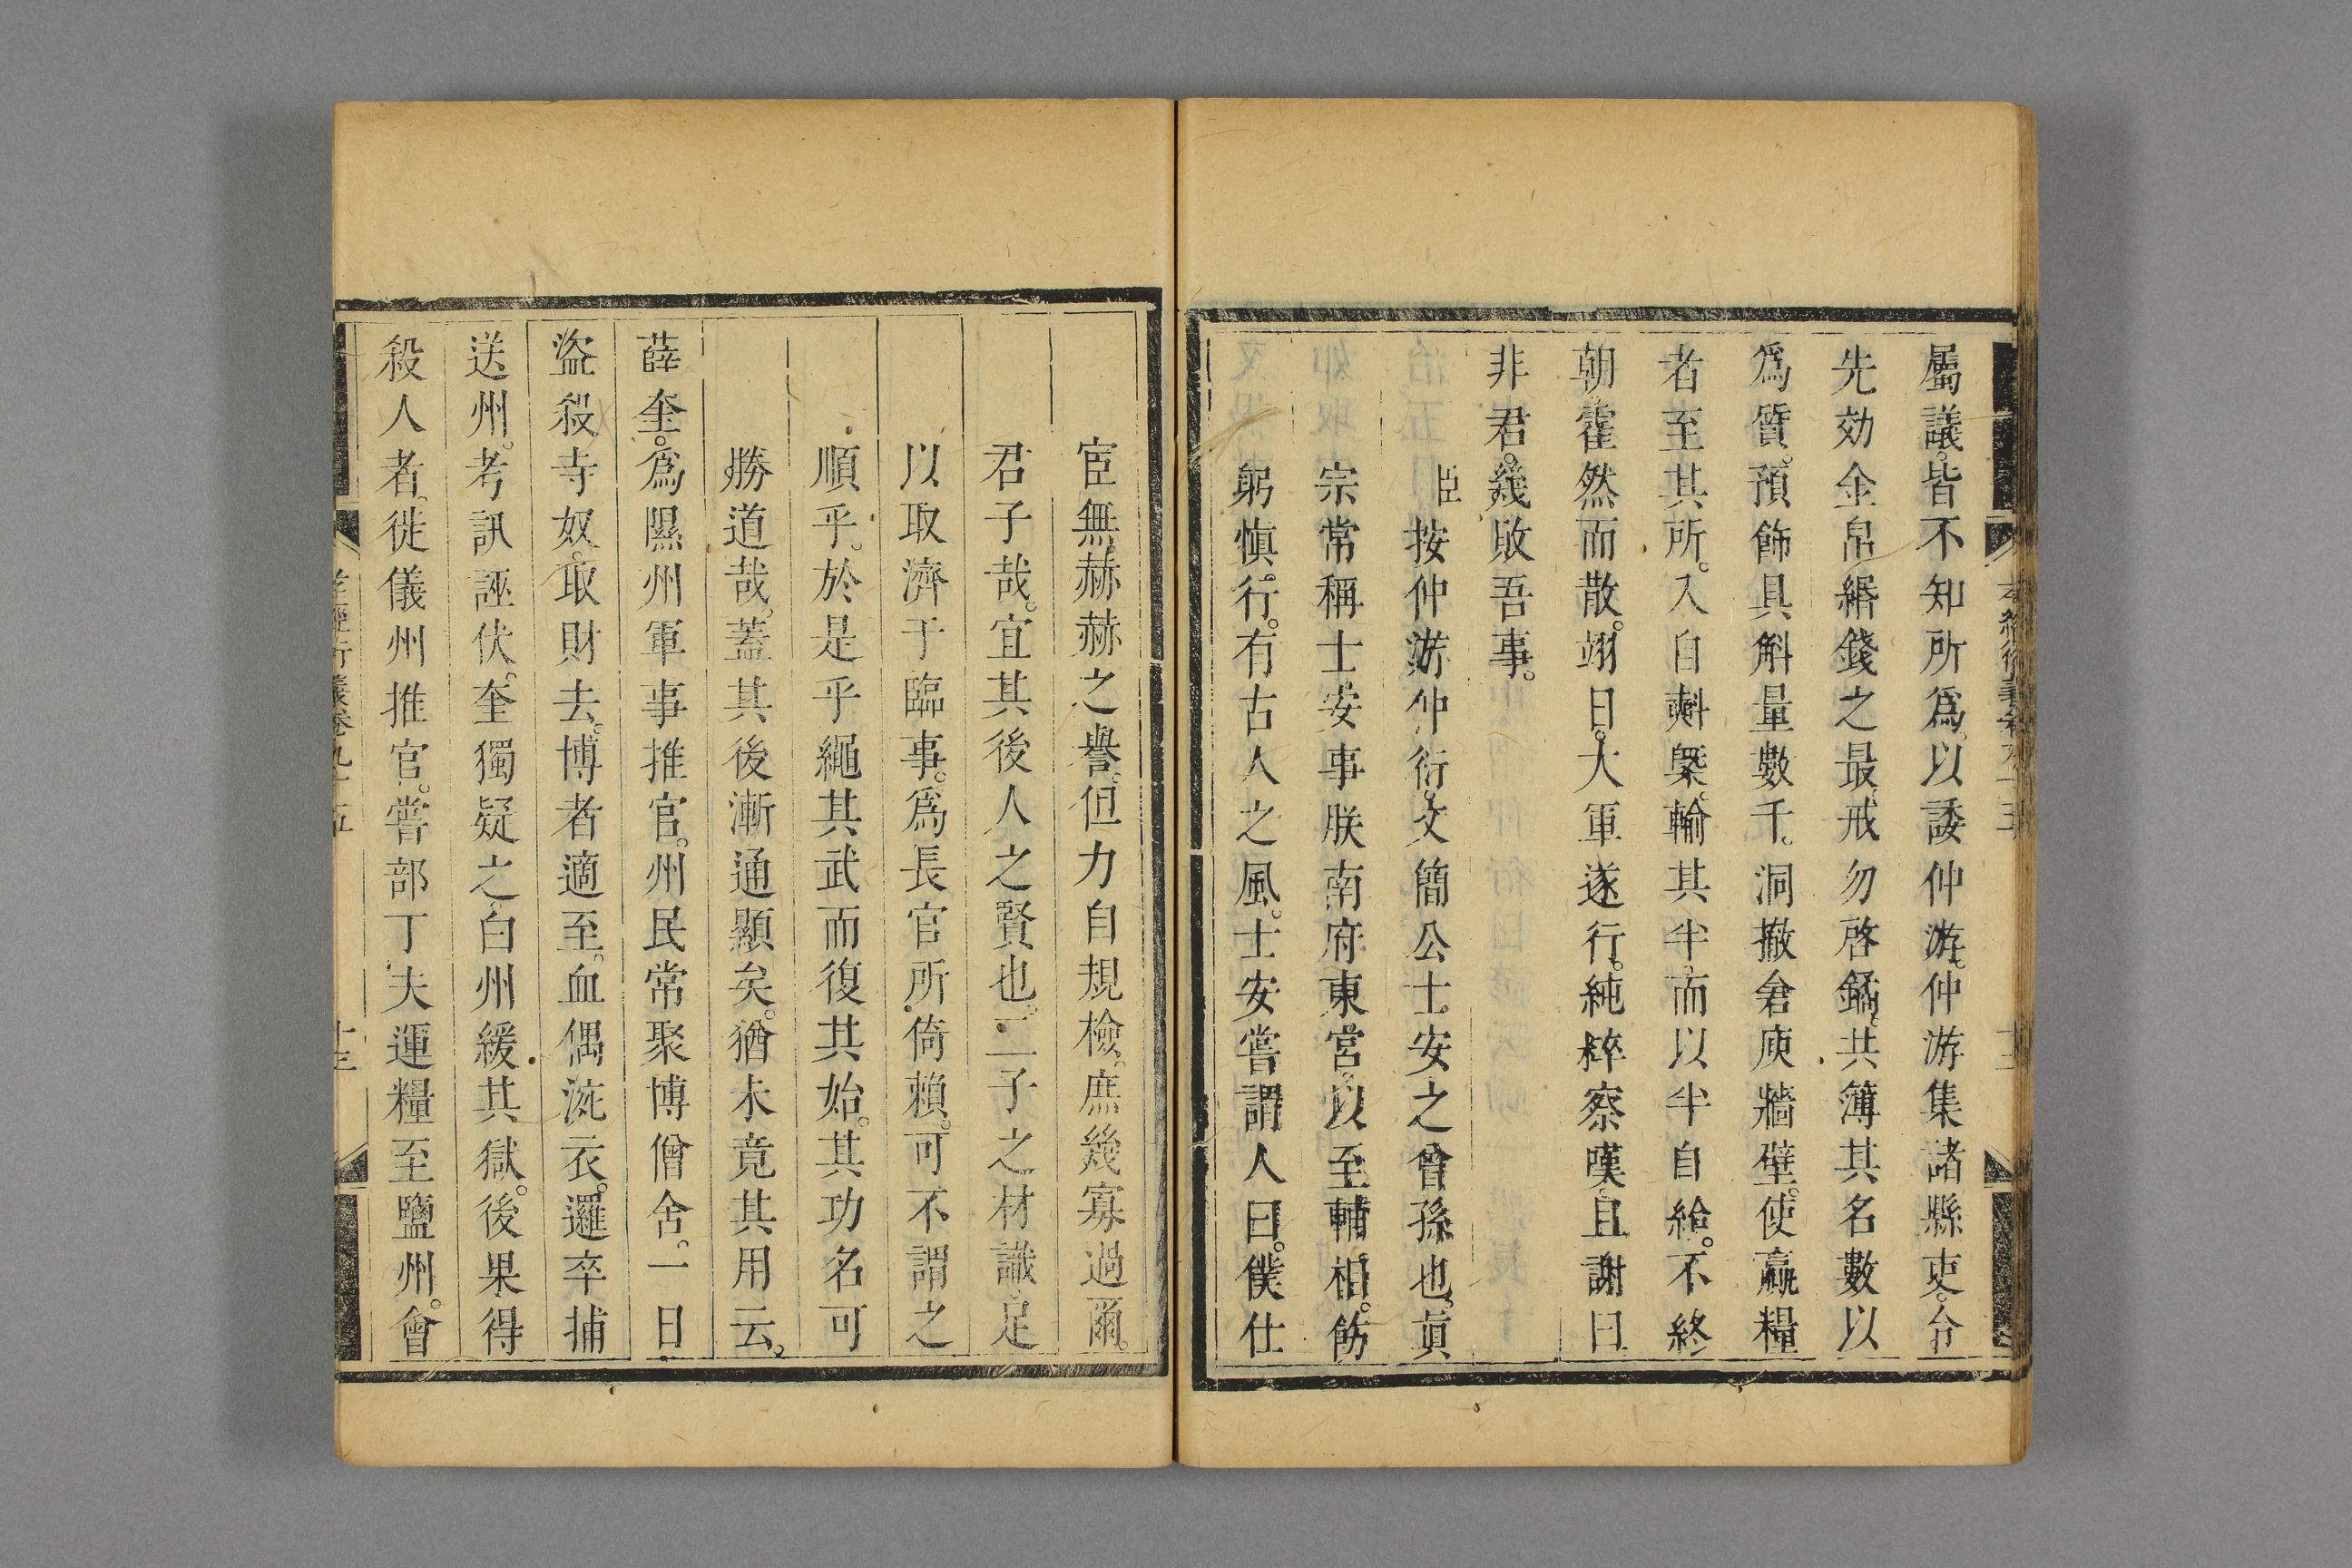 屬議。皆不知所爲。以諉仲游。仲游集諸縣吏。令
先効金帛緡錢之最。戒勿啓鐍。共簿其名數以
爲質。預飾具斛量數千。洞撤倉庾牆壁。使贏糧
者至其所。入自㪺槩。輸其半。而以半自給。不終
朝霍然而散。翊日。大軍遂行。純粹察嘆。且謝曰
非君。幾敗吾事。
臣按仲游仲衍。文簡公士安之曾孫也。眞
宗常稱士安事朕南府東宮。以至輔相。飭
躬慎行。有古人之風。士安嘗謂人曰。僕仕
宦無赫赫之譽。但力自規檢。庶幾寡過爾。
君子哉。宜其後人之賢也。二子之材識足
以取濟于臨事。爲長官所倚賴。可不謂之
順乎。於是乎繩其武而復其始。其功名可
勝道哉。蓋其後漸通顯矣。猶未竟其用云。
薛奎。爲隰州軍事推官。州民常聚博僧舍。一日
盜殺寺奴。取財去。博者適至。血偶涴衣。邏卒捕
送州。考訊誣伏。奎獨疑之。白州緩其獄。後果得
殺人者。徙儀州推官。嘗部丁夫運糧至鹽州。會
孝經衍義卷九十五 十三